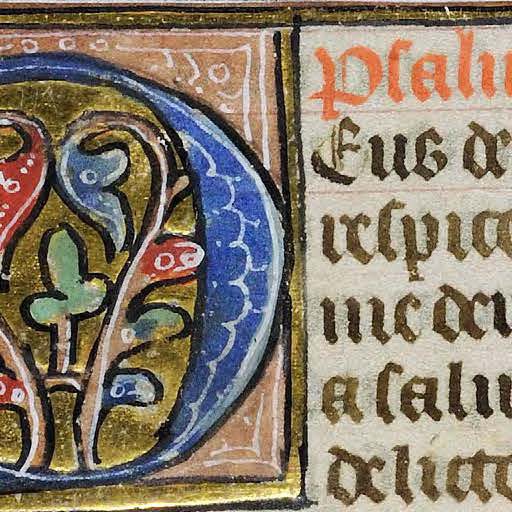 Psalm
Eus de
respice
me der
a salu
delicto